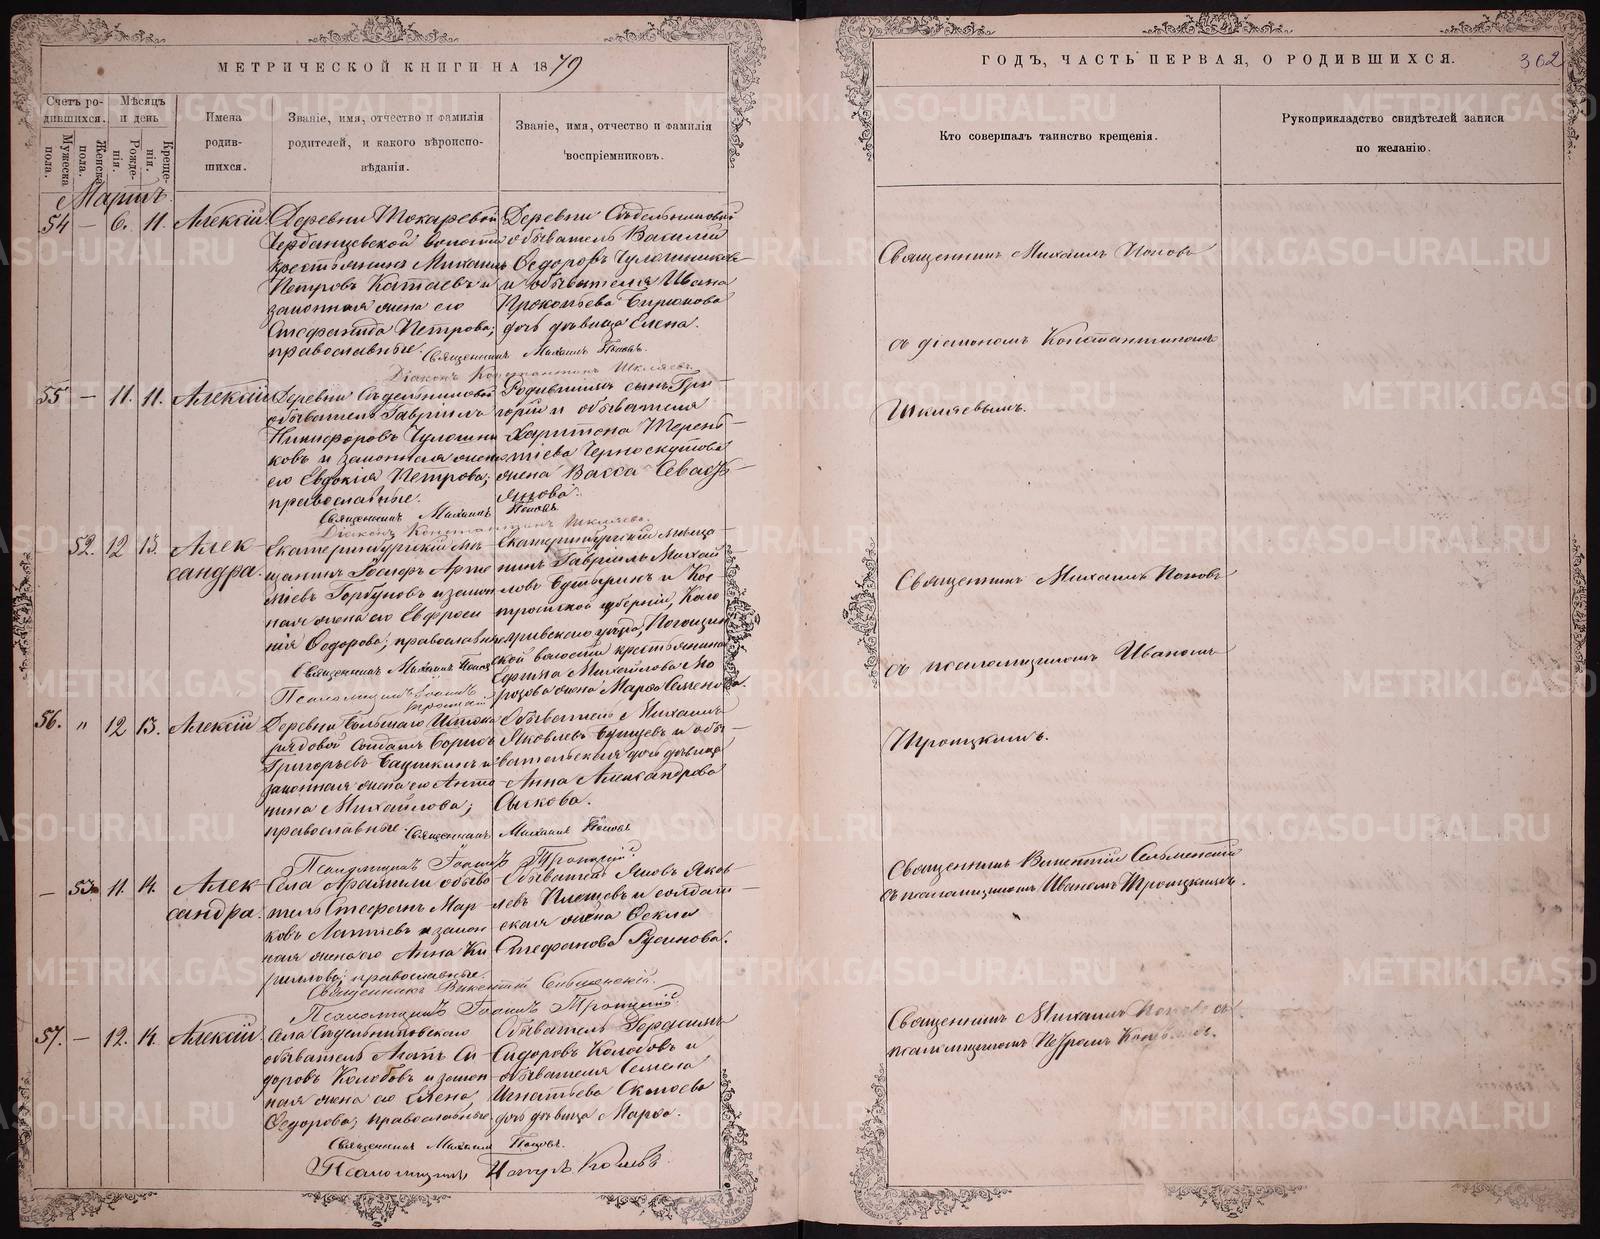 МЕТРИЧЕСКОЙ КНИГИ НА 1879
ГОДЪ, ЧАСТЬ ПЕРВАЯ, О РОДИВШИХСЯ.
302
Счетъ ро-
дившихся.
Мужеска пола.
Женска пола.
Мѣсяцъ
и день
Рожде-
нія.
Креще-
нія.
Имена
родив-
шихся.
Званіе, имя, отчество и фамилія
родителей, и какого вѣроиспо-
вѣданія.
Званіе, имя, отчество и фамилія
воспріемниковъ.
Кто совершалъ таинство крещенія.
Рукоприкладство свидѣтелей записи
по желанію.
Мартъ
54 — 6. 11. Алексій
Деревни Токаревой
волости
крестьянинъ Михаилъ
Петровъ Катаевъ и
законная жена его
Стефанида Петрова;
православные.
Деревни Сѣдельниковой
обыватель Василій
Ѳедоровъ Чулошников
и обывателя Ивана
Прокопьева Бирюкова
дочь дѣвица Елена.
Священникъ Михаилъ Поповъ.
Діаконъ Константинъ Шкляевъ.
Священникъ Михаилъ Поповъ
съ діакономъ Константиномъ
Шкляевымъ.
55 — 11. 11. Алексій
Деревни Сѣдельниковой
обыватель Гавріилъ
Никифоровъ Чулошни
ковъ и законная жена
его Евдокія Петрова;
православные.
Родившимъ сынъ Гри-
горій и обывателя
Харитона Терень-
тіева Черноскутова
жена Васса Севасть-
янова.
Священникъ Михаилъ Поповъ.
Діаконъ Константинъ Шкляевъ.
52. 12 13. Алек-
сандра.
Екатеринбургскій мѣ-
щанинъ Іосифъ Арте
міевъ Горбуновъ и закон
ная жена его Евфроси
нія Ѳедорова; православные
Екатеринбургскій мѣща-
нинъ Гавріилъ Михай
ловъ и Кос-
тромской губерніи, Коло
гривскаго уѣзда,
ской волости крестьянина
Ефима Михайлова Мо
розова жена Марѳа Семенова.
Священникъ Михаилъ Поповъ
Псаломщикъ Іоаннъ
Троицкій
Священникъ Михаилъ Поповъ
съ псаломщикомъ Иваномъ
Троицкимъ.
56. " 12 13. Алексій
Деревни Большаго Истока
рядовой солдатъ Борисъ
Григорьевъ Баушкинъ и
законная жена его Анто
нина Михайлова;
православные.
Обыватель Михаилъ
Яковлевъ и обы-
вательская дочь дѣвица
Анна Александрова
Сыскова.
Священникъ Михаилъ Поповъ
Псаломщикъ Іоаннъ Троицкій.
— 53 11. 14. Алек
сандра.
Села Арамили обыва
тель Стефанъ Мар-
ковъ Лаптевъ и закон
ная жена его Анна Ки
риллова; православные.
Обыватель Яковъ Яков
левъ Плещевъ и солдат-
ская жена Ѳекла
Стефанова Русинова.
Священникъ Викентій Сельменскій.
Псаломщикъ Іоаннъ Троицкій.
Священникъ Викентій Сельменскій
съ псаломщикомъ Иваномъ Троицкимъ.
57. — 12. 14. Алексій.
Села Сѣдельниковскаго
обыватель Агапъ Си-
доровъ Колобовъ и закон-
ная жена его Елена
Ѳедорова; православные.
Обыватель Герасимъ
Сидоровъ Колобовъ и
обывателя Семена
Игнатьева
дочь дѣвица Марѳа.
Священникъ Михаилъ Поповъ.
Псаломщикъ Петръ
Священникъ Михаилъ Поповъ съ
псаломщикомъ Петромъ
METRIKI.GASO-URAL.RU